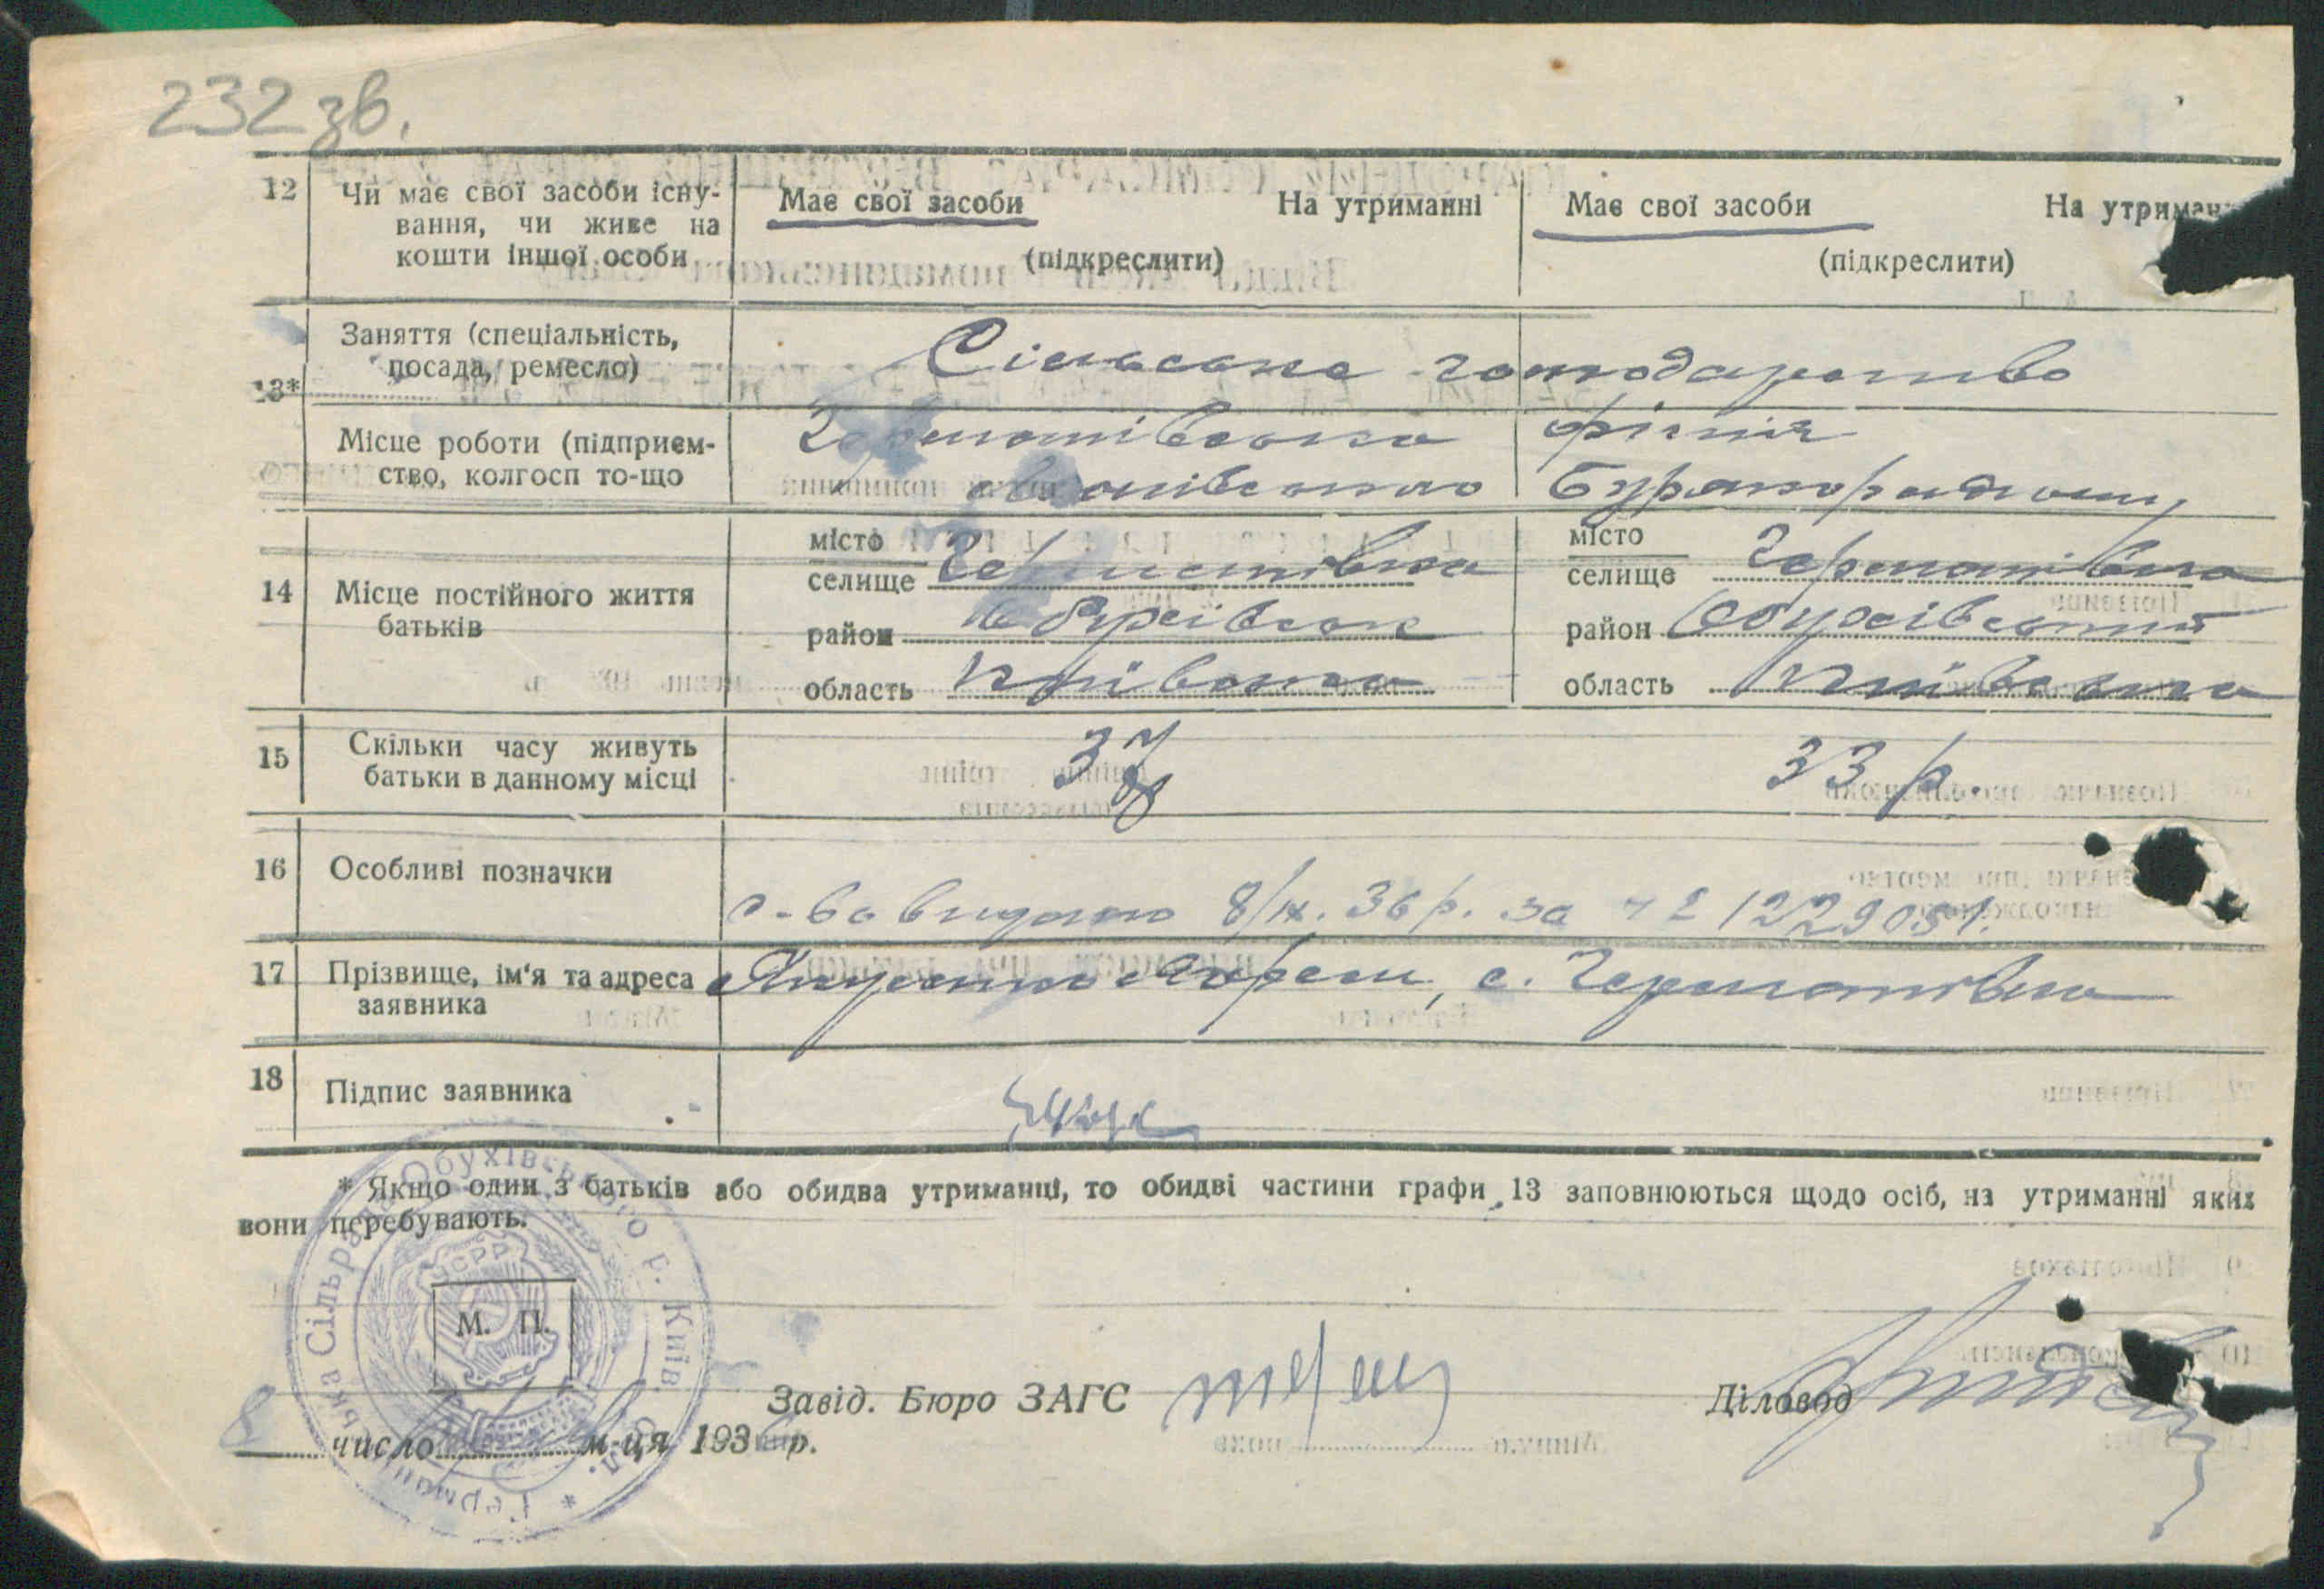 232 зв.
12 Чи має свої засоби існу- Має свої засоби На утриманні Має свої засоби На утриман
вання, чи живе на
кошти іншої особи (підкреслити) (підкреслити)
Заняття (спеціальність, Сільське господарство
посада, ремесло)
13*
Місце роботи (підприєм- Германівська філія
ство, колгосп то-що Бурякорадгоспу
14 Місце постійного життя батьків
місто
селище Германівка
район Обухівськ
область Київська
місто
селище Германівка
район Обухівський
область Київська
15 Скільки часу живуть 37 р 33 р.
батьки в данному місці
16 Особливі позначки
с-во видано 8/ІХ. 36 р. за 1229051.
17 Прізвище, ім'я та адреса с. Германівка
заявника
18 Підпис заявника
* Якщо один з батьків або обидва утриманці, то обидві частини графи 13 заповнюються щодо осіб, на утриманні яких
вони перебувають.
Германівська Сільрада Обухівського р. Київ. Обл. *
УСРР
М. П.
Завід. Бюро ЗАГС Діловод
8 число м-ця 1936 р.